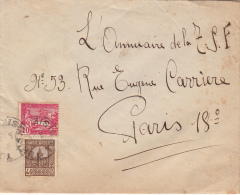 L'Annuaire de la T.S.F
N° 53. Rue Eugène Carrière
Paris 18e